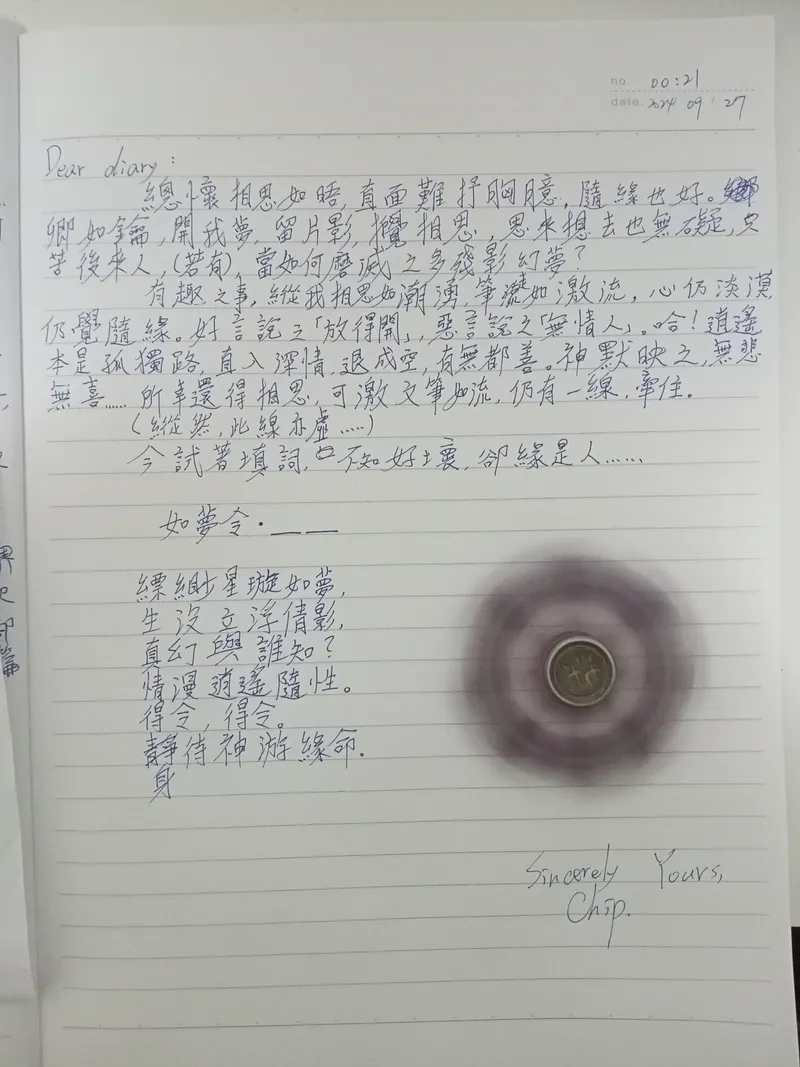 no. 00:21
date. 2024 09 27
Dear diary:
總懷相思如晤,直面難抒胸臆,隨緣也好。
卿如鑰,開我夢,留片影,攪相思,思來想去也無礙,只
苦後來人,(若有),當如何磨滅之多殘影幻夢?
有趣之事,縱我相思如潮湧,筆疏如激流,心仍淡漠
仍覺隨緣。好言說之「放得開」,惡言說之「無情人」。哈!逍遙
本是孤獨路,直入深情,退成空,有無都善。神默映之,無悲
無喜…… 所幸還得相思,可激文筆如流,仍有一線,牽住。
(縱然,此線亦虛……)
今試著填詞,也不知好壞,卻緣是人……
如夢令·__ __
縹緲星璇如夢,
生沒立浮倩影,
真幻與誰知?
情漫逍遙隨性。
得令,得令。
靜待神游緣命.
身
Sincerely Yours,
Chip.